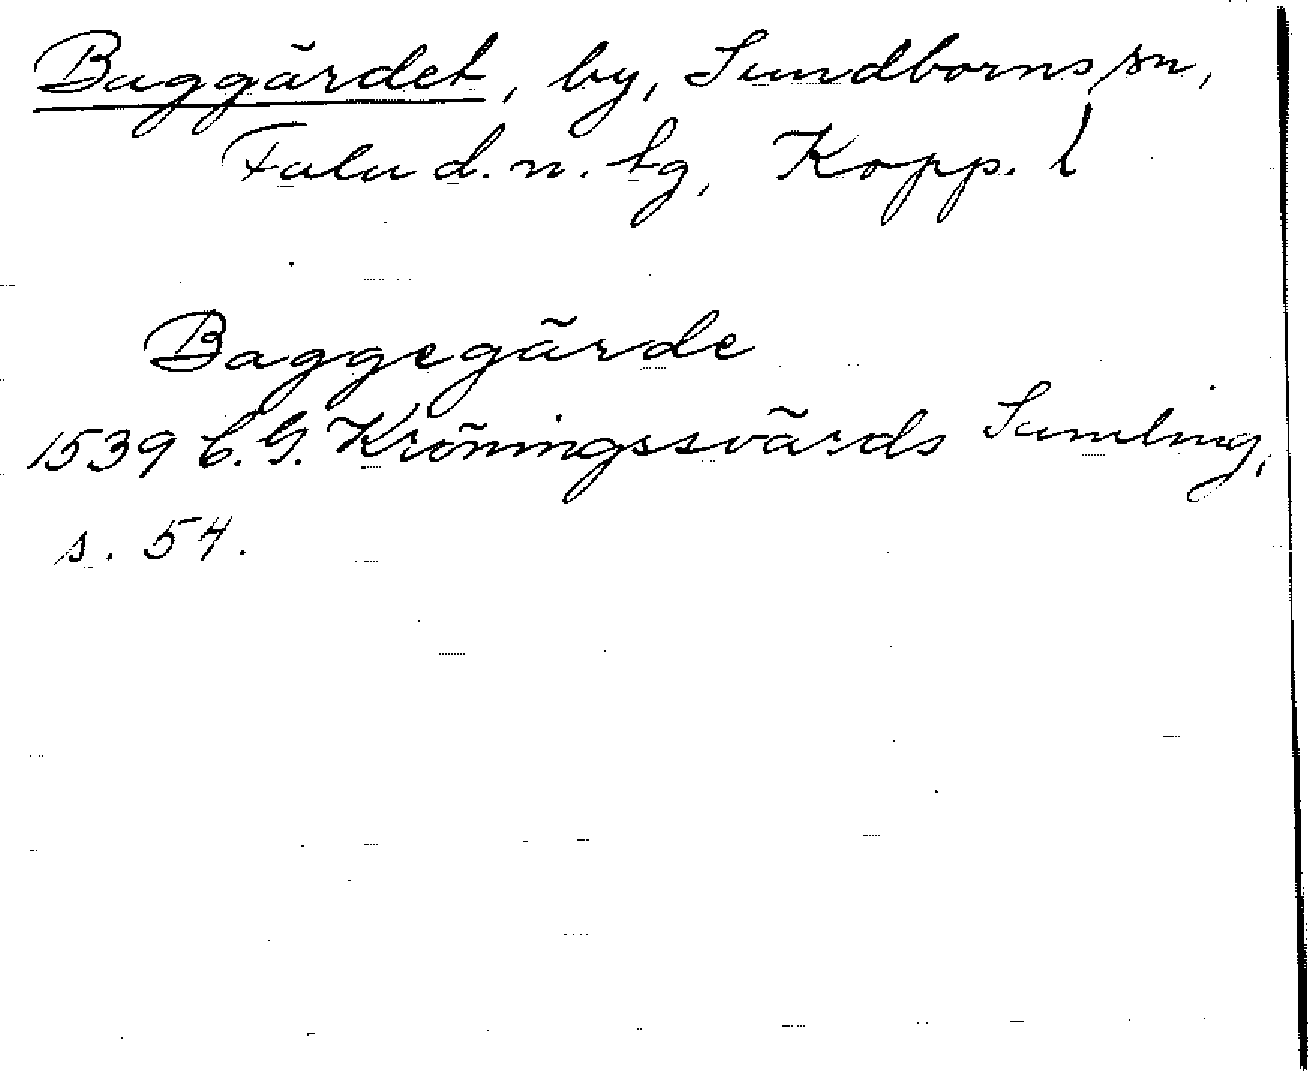 Baggärdet, by, Sundborns sn,
Falu d.n. tg, Kopp. l
Baggegärde
1539 C.G. Kröningssvärds Samling,
s. 54.